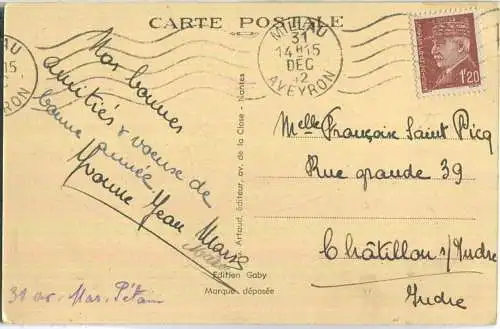 CARTE POSTALE
AU
15
EYRON
MILLAU
31
14H15
DEC
42
AVEYRON
1F20
Nos bonnes
amitiés & voeux de
bonne année
Yvonne Jean Marie
Artaud, éditeur, av. de la Close - Nantes
Edition Gaby
Marque déposée
31 av. Mar. Pétain
Melle Françoise Saint Picq
Rue grande 39
Châtillon s/Indre
Indre